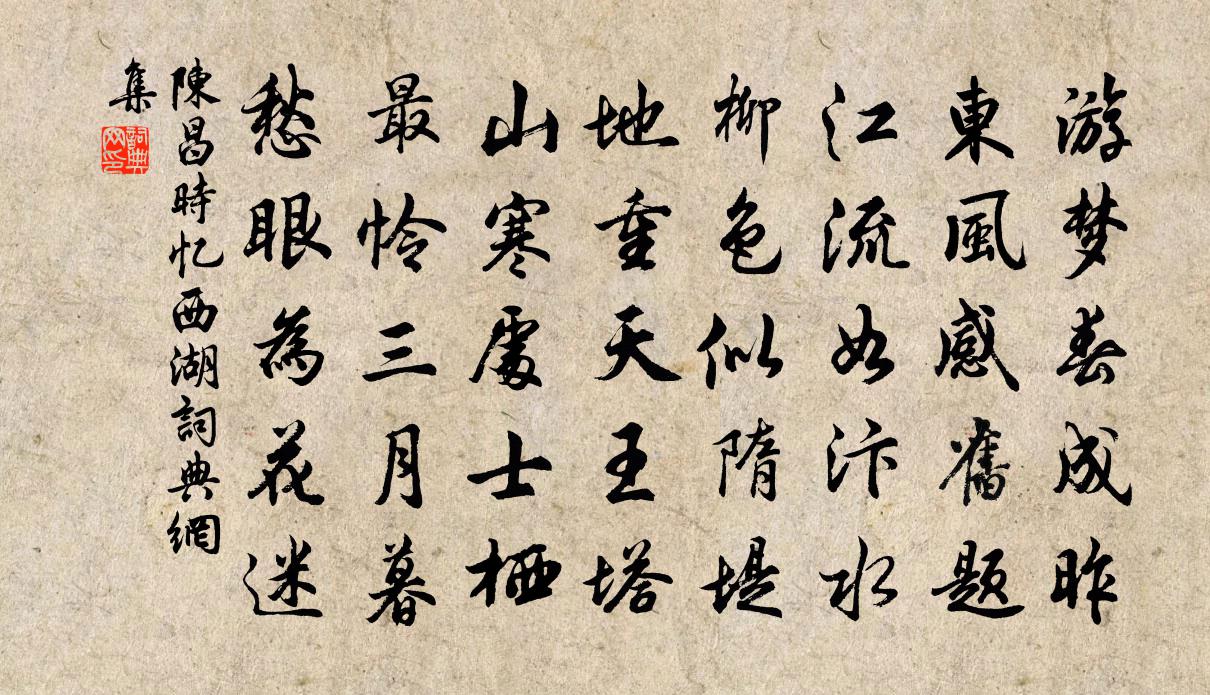 游梦春成昨
東風感舊題
江流如汴水
柳色似隋堤
地重天王塔
山寒處士栖
最怜三月暮
愁眼為花迷
陳昌時忆西湖詞典網
集
詞典
网印